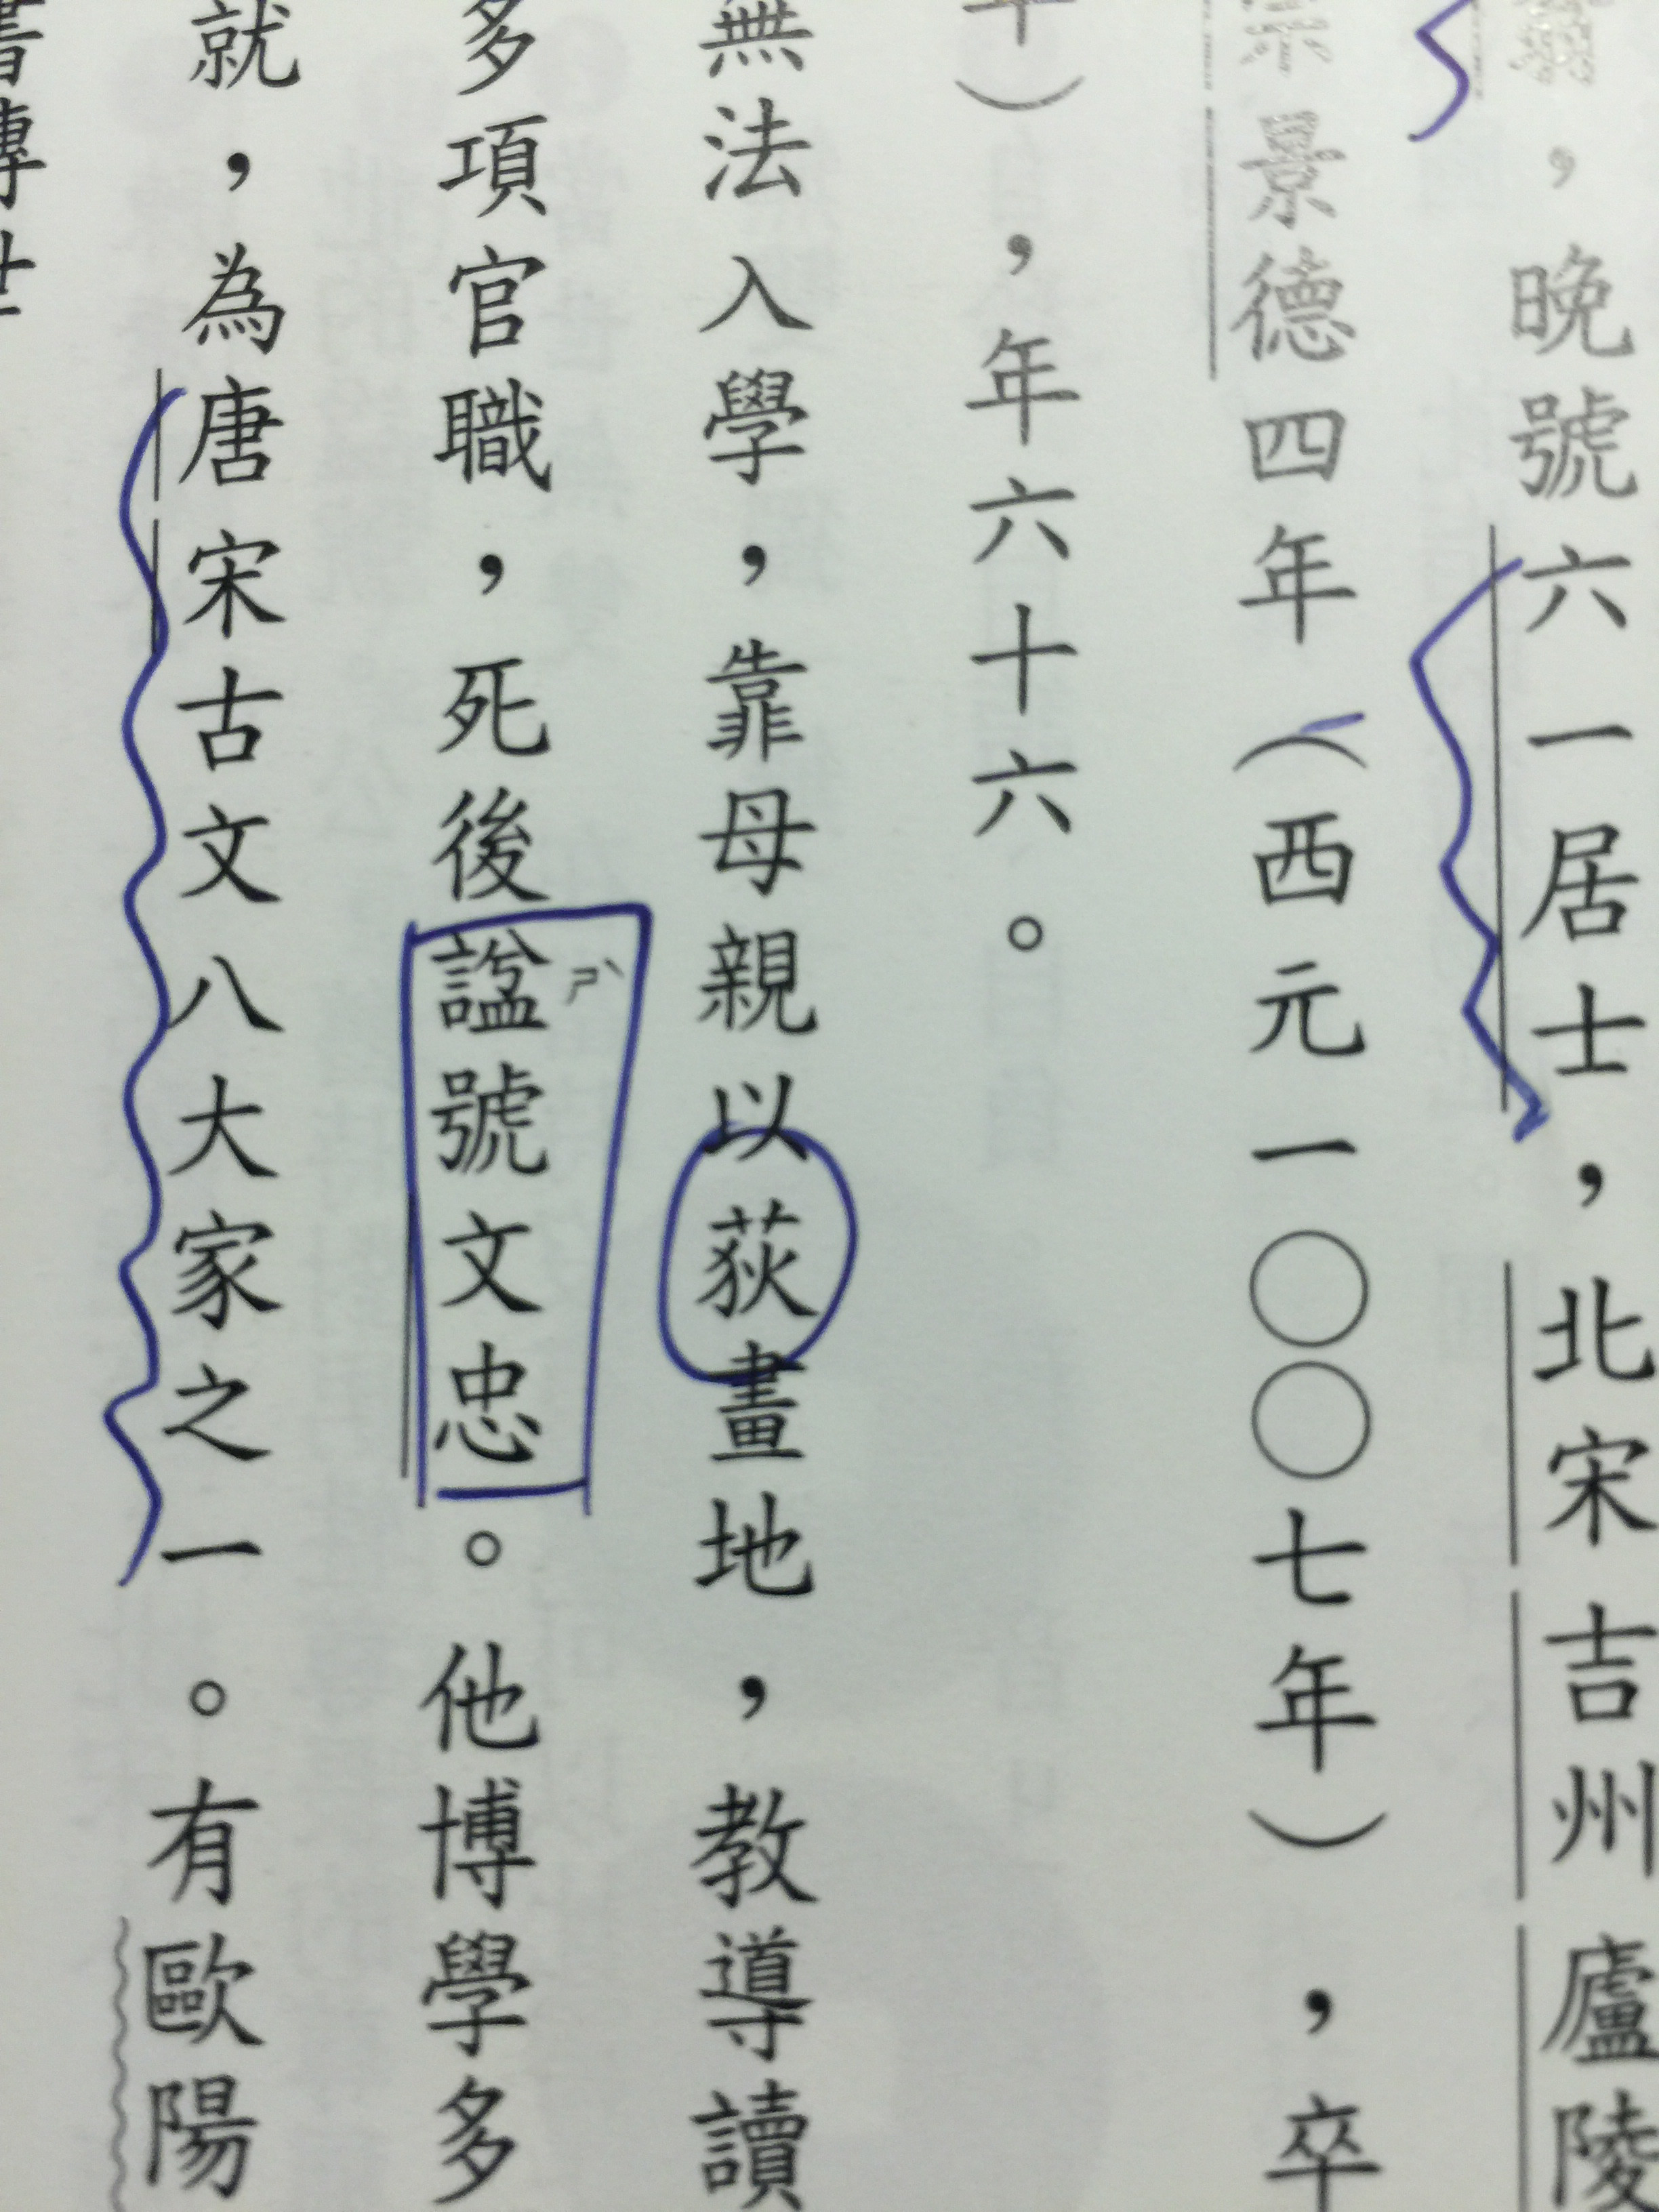 翁，晚號六一居士，北宋吉州廬陵
宗景德四年（西元一〇〇七年），卒
年），年六十六。
無法入學，靠母親以荻畫地，教導讀
多項官職，死後諡號文忠。他博學多
ㄕˋ
就，為唐宋古文八大家之一。有歐陽
書傳世